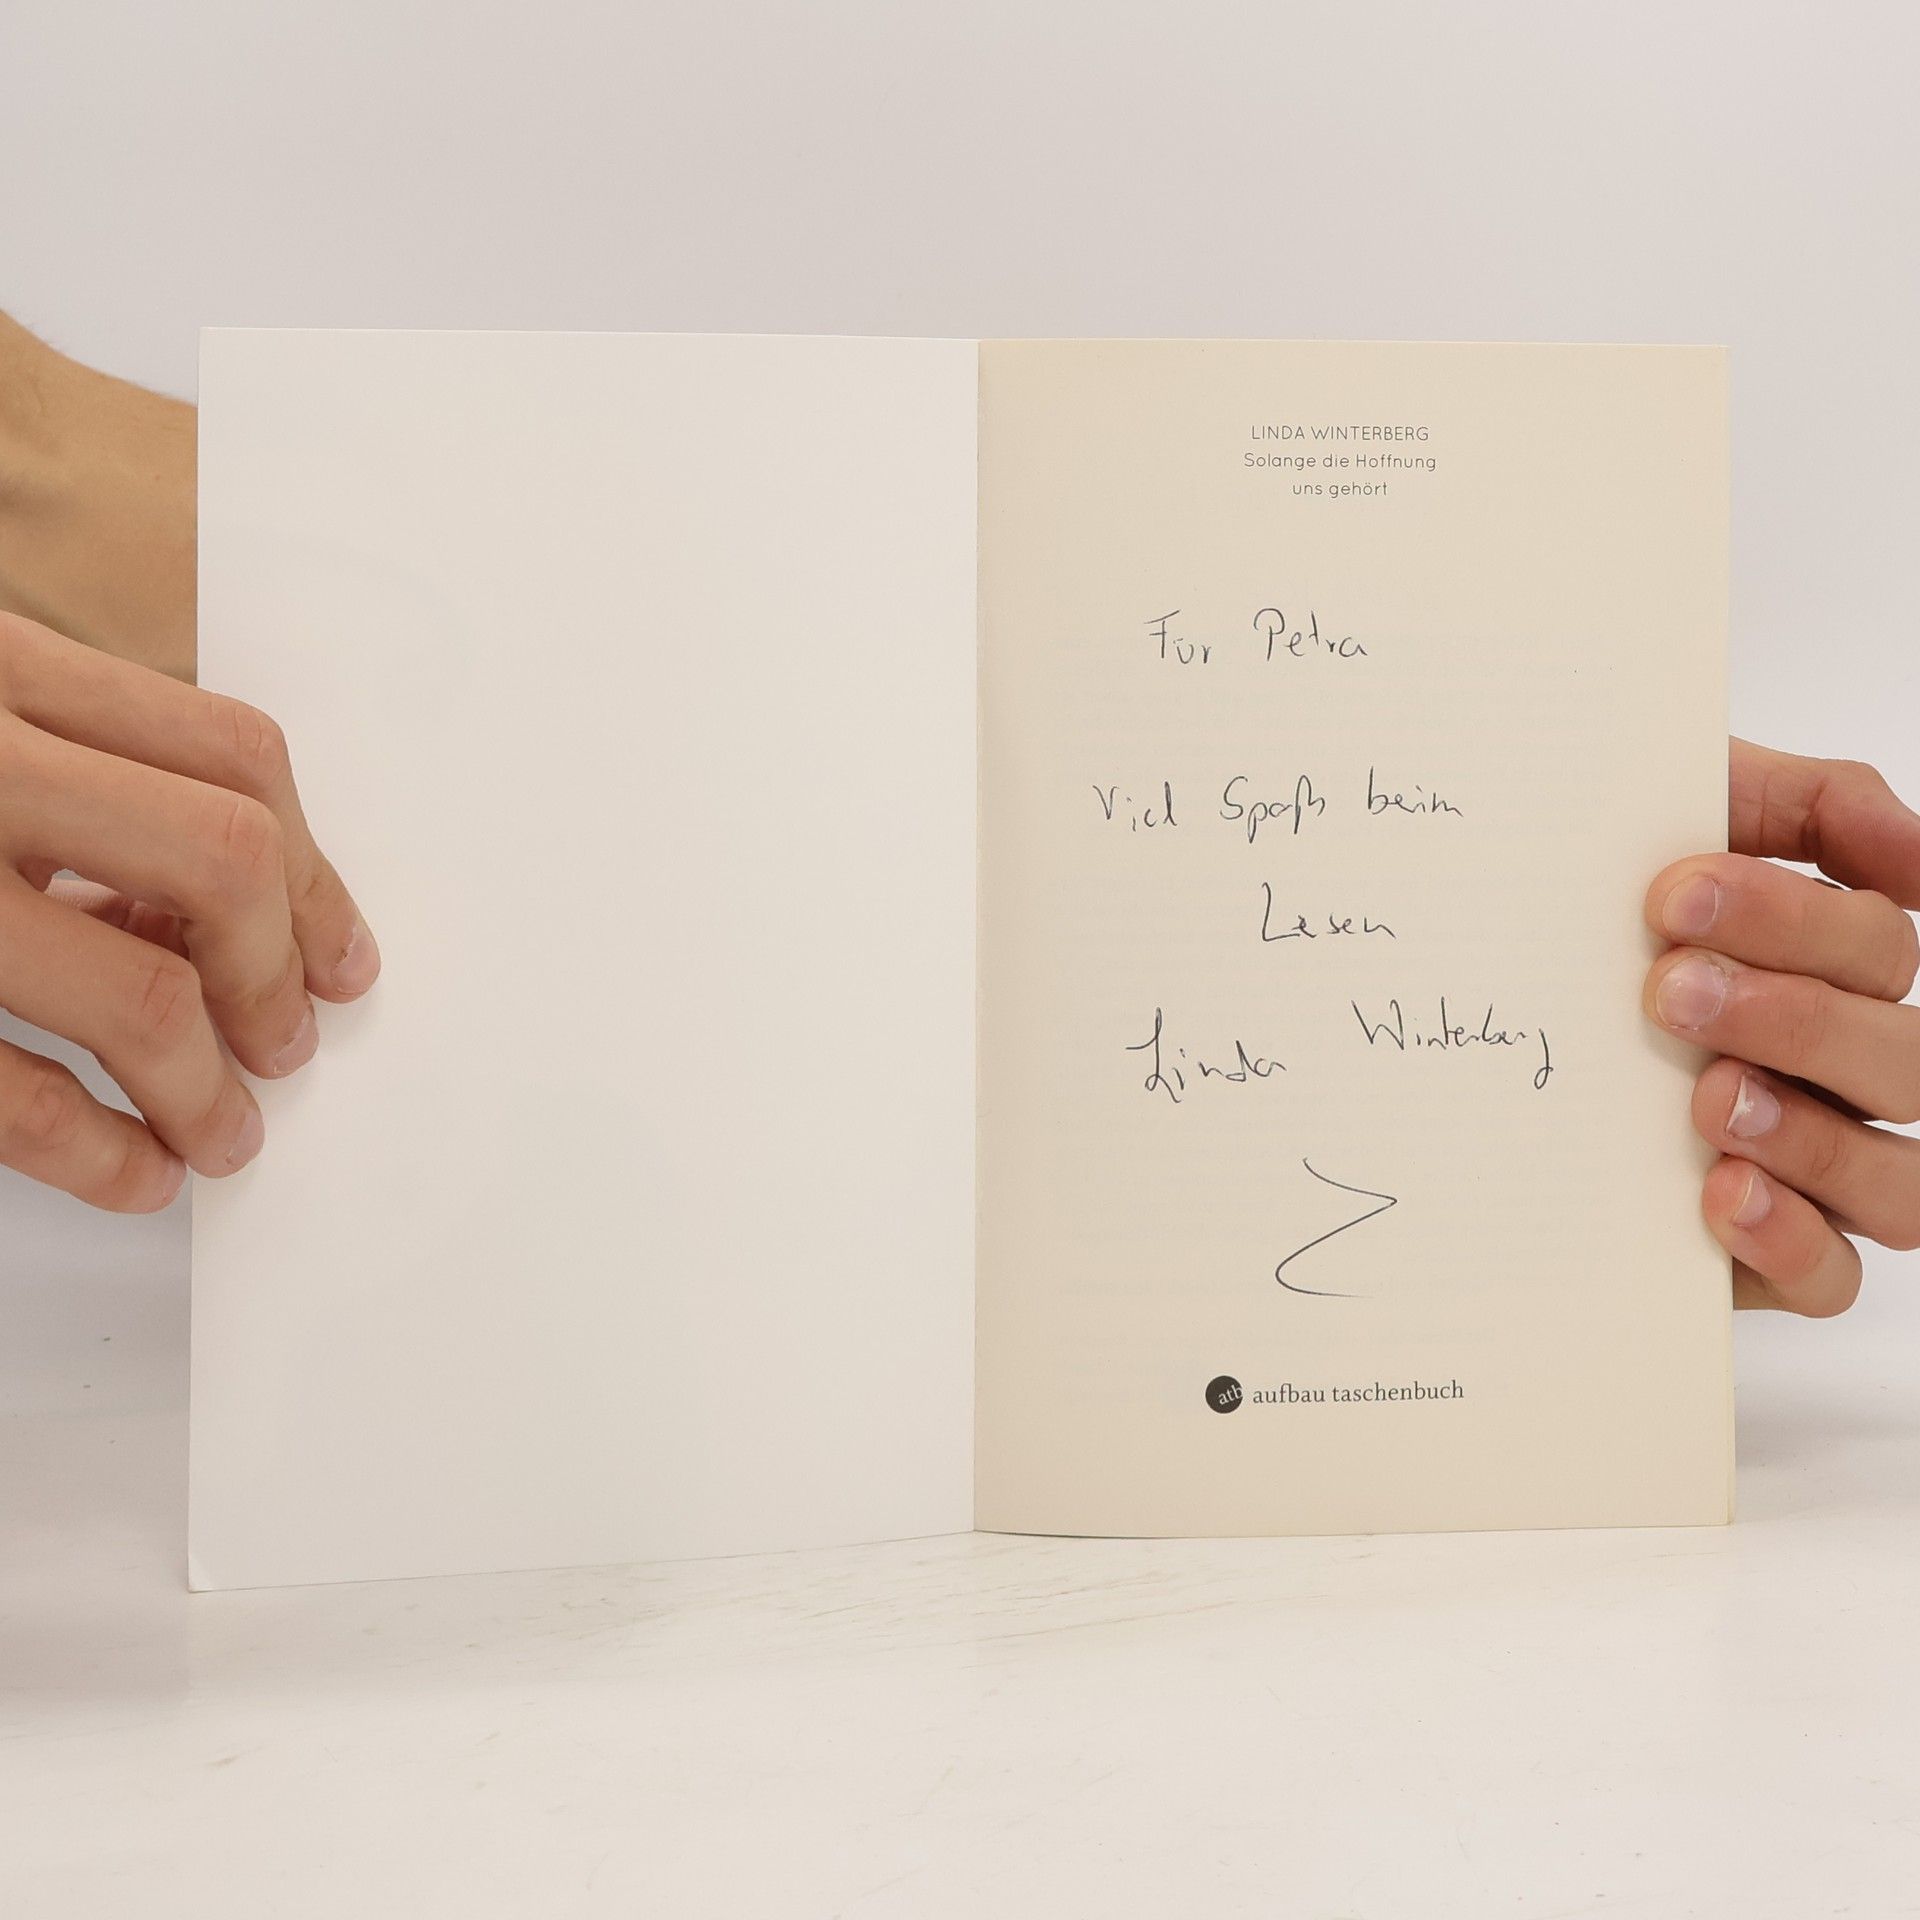 LINDA WINTERBERG
Solange die Hoffnung
uns gehört
Für Petra
Viel Spaß beim
Lesen
Linda Winterberg
atb aufbau taschenbuch